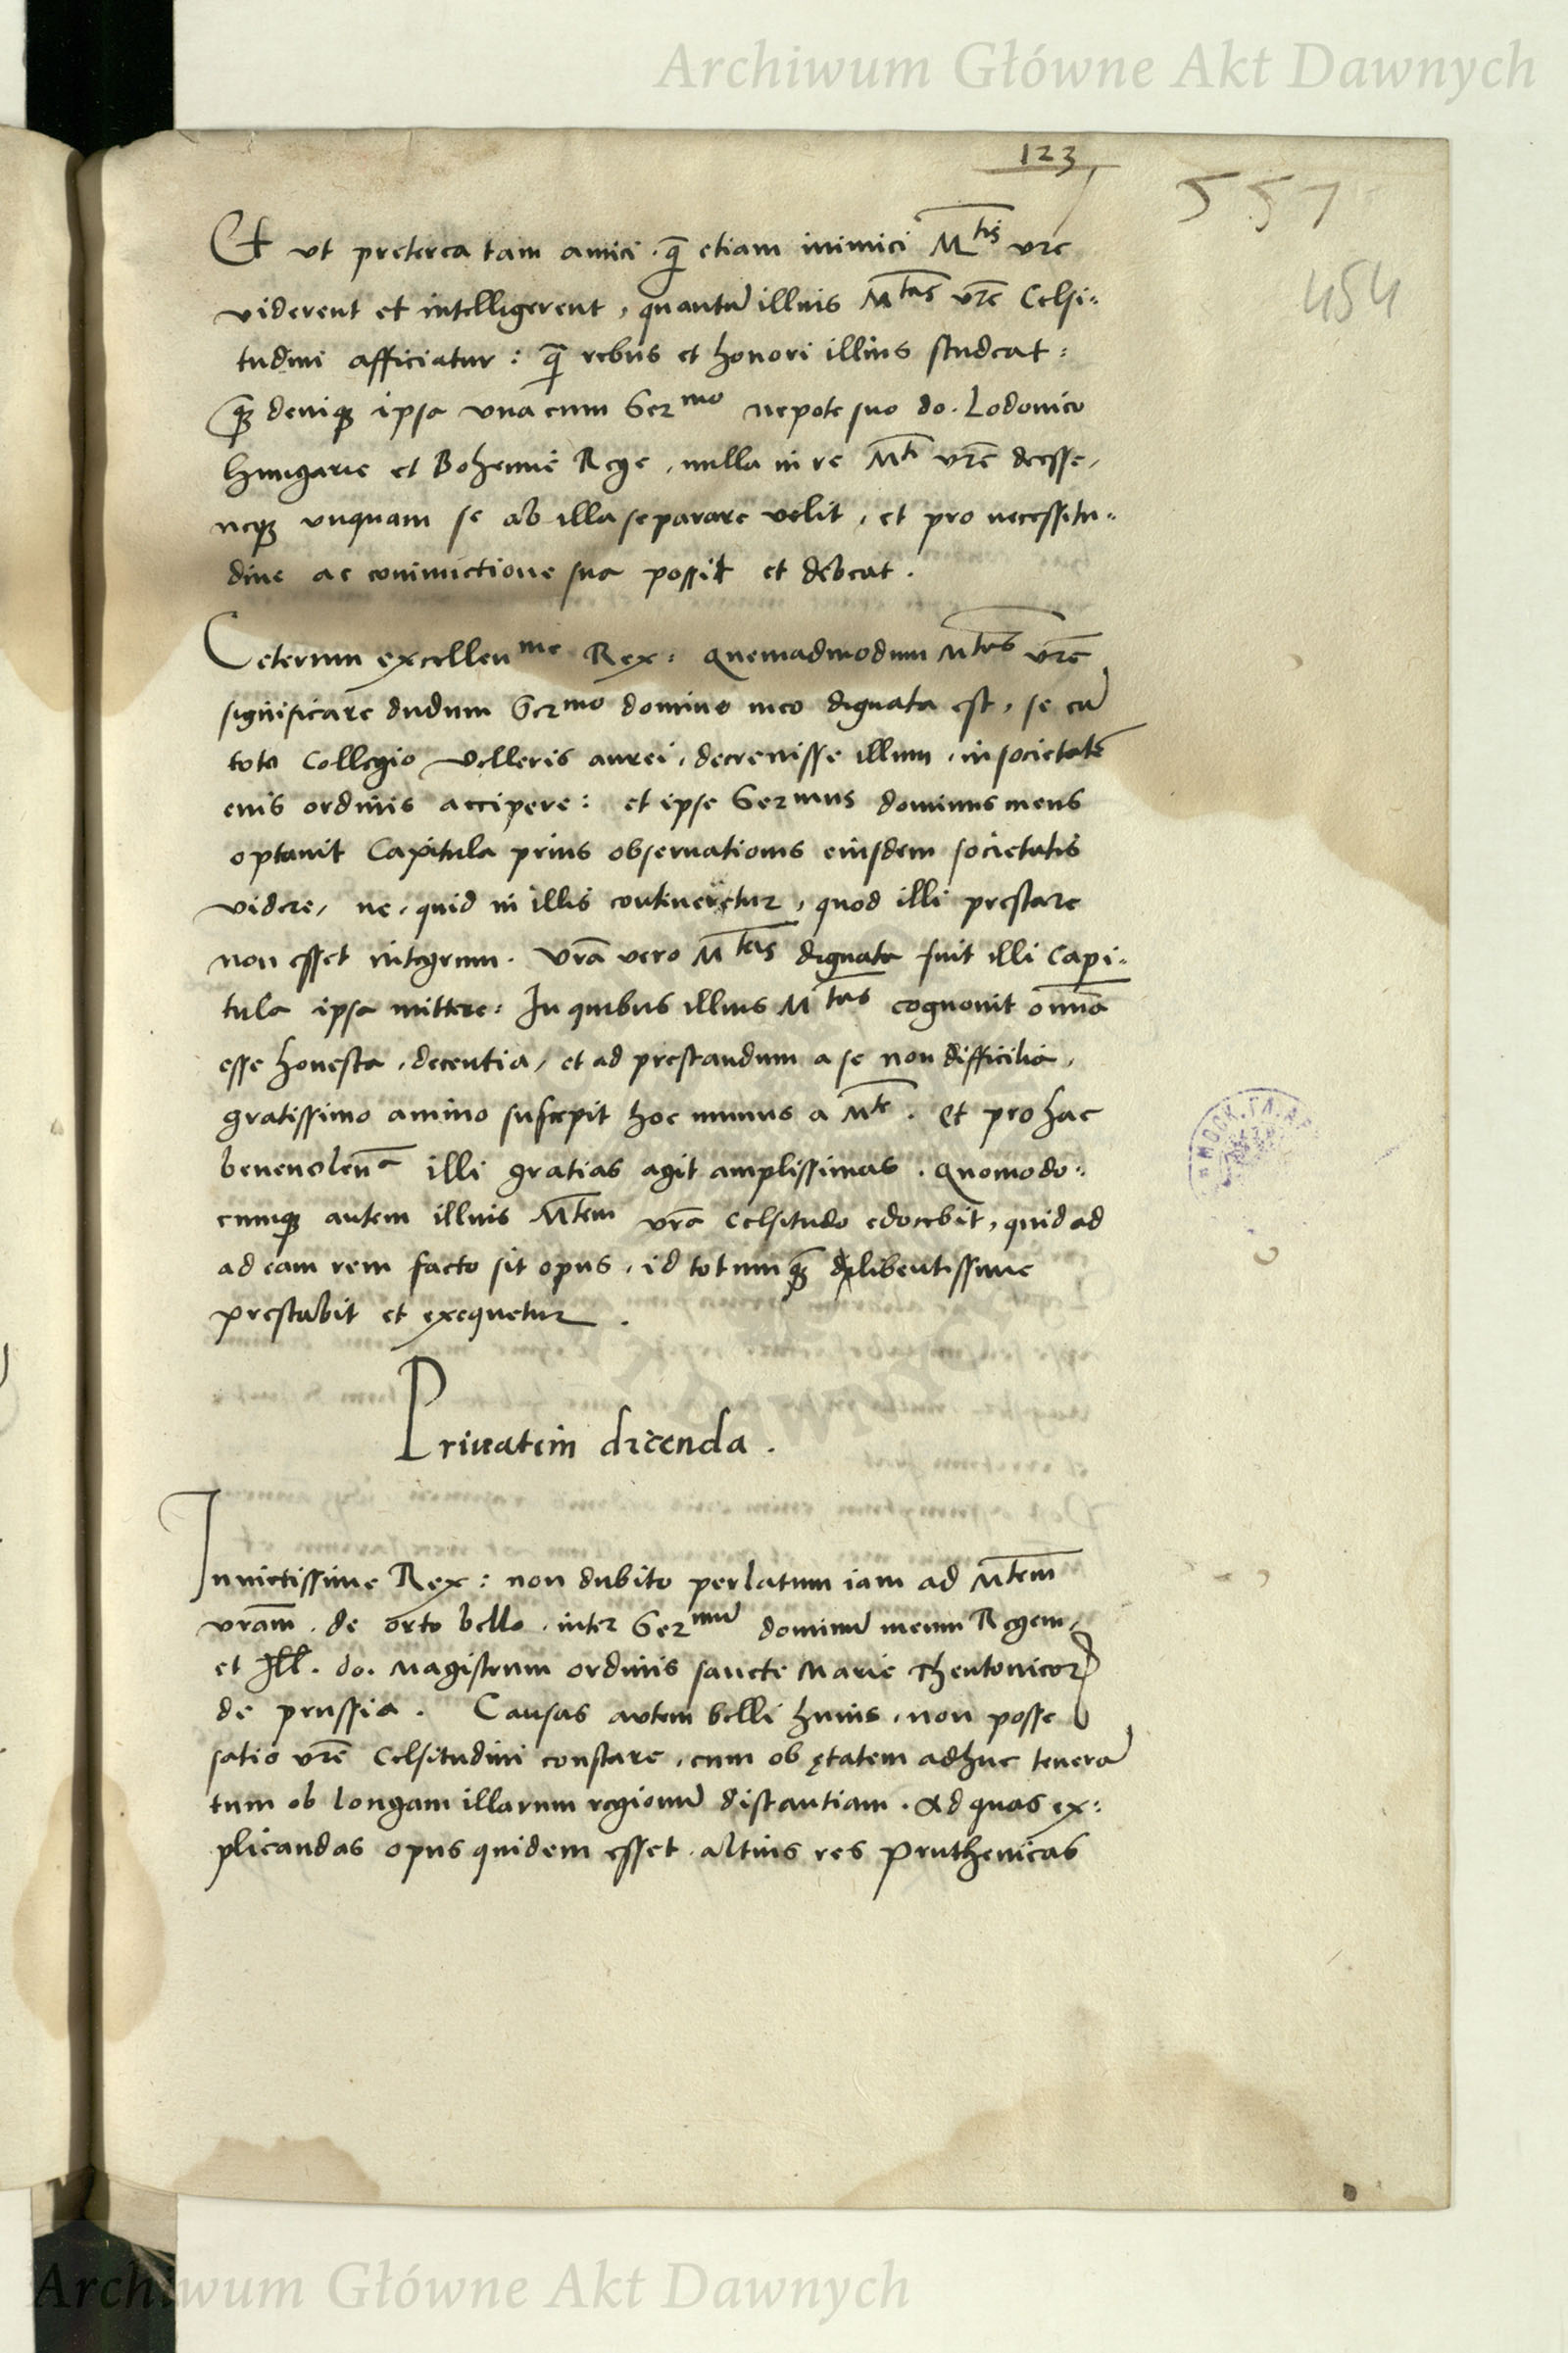 Archiwum Główne Akt Dawnych
123
557
454
Et ut preterea tam amici · q̃ etiam inimici M^tis vre
viderent et intelligerent, quantũ illius M^tas vrẽ Celsi:
tudini afficiatur : q̃ rebus et honori illius studeat :
q̃ deniq ipsa una cum Ser^mo nepote suo do. Lodovico
Hungarie et Bohemie Rege, nulla in re M^ti vrẽ deesse,
neq unquam se ab illa separare velit, et pro necessitu:
dine ac coniunctione sua possit et debeat.
Ceterum excellen^me Rex : Quemadmodum M^tas vrẽ
significare dudum Ser^mo domino meo dignata est, se cũ
toto Collegio velleris aurei, decrevisse illum, in societatẽ
eius ordinis accipere : et ipse Ser^mus dominus meus
optavit Capitula prius observationis eiusdem societatis
videre, ne, quid in illis contineretur, quod illi prestare
non esset integrum. Vrã vero M^tas dignata fuit illi Capi:
tula ipsa mittere : In quibus illius M^tas cognovit omnã
esse honesta, decentia, et ad prestandum a se non difficilia,
gratissimo animo suscepit hoc munus a M^te. Et pro hac
benevolen^a illi gratias agit amplissimas. Quomodo:
cumq autem illius M^tem vrã Celsitudo edocebit, quid ad
ad eam rem facto sit opus, id totum q̃ libentissime
prestabit et exequetur.
Privatim dicenda.
Invictissime Rex : non dubito perlatum iam ad M^tem
vrãm, de orto bello, inter Ser^mũ dominũ meum Regem,
et Ill. do. Magistrum ordinis sancte Marie Theutonicor
de prussia. Causas autem belli huius, non posse
satis vrẽ Celsitudini constare, cum ob ętatem adhuc tenerã
tum ob longam illarum regionũ distantiam. Ad quas ex:
plicandas opus quidem esset altius res Pruthenicas
Archiwum Główne Akt Dawnych